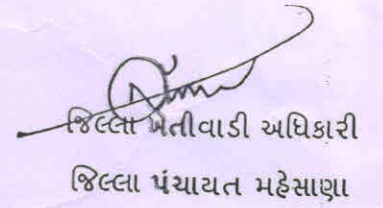 જિલ્લા ખેતીવાડી અધિકારી
જિલ્લા પંચાયત મહેસાણા